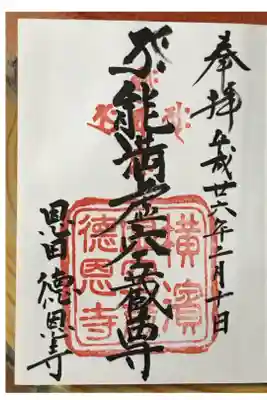 奉拝 平成廿六年一月十日
能満虚空蔵尊
恩田 徳恩寺
横濱
徳恩寺